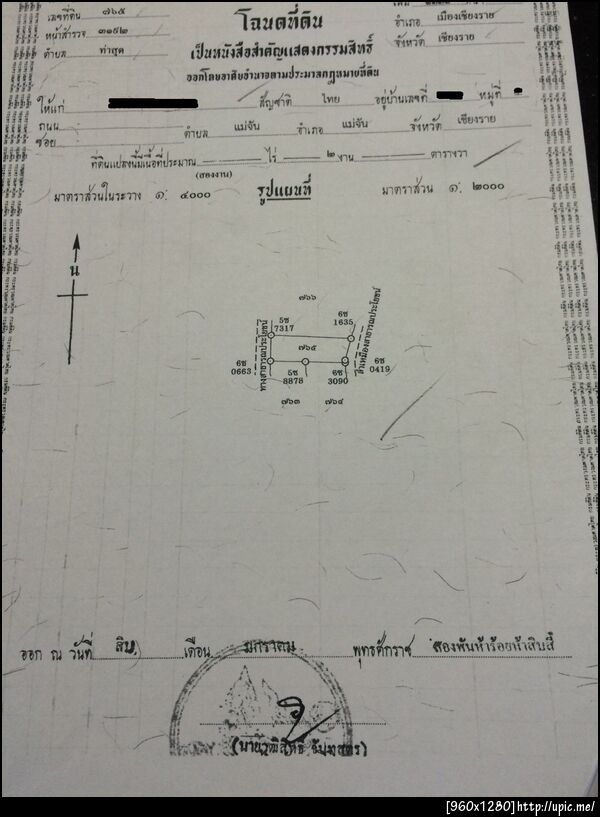 เลขที่ดิน ๗๖๕
หน้าสำรวจ ๓๑๕๒
ตำบล ท่าสุด
โฉนดที่ดิน
เป็นหนังสือสำคัญแสดงกรรมสิทธิ์
ออกโดยอาศัยอำนาจตามประมวลกฎหมายที่ดิน
อำเภอ เมืองเชียงราย
จังหวัด เชียงราย
ให้แก่ สัญชาติ ไทย อยู่บ้านเลขที่ หมู่ที่
ถนน ตำบล แม่จัน อำเภอ แม่จัน จังหวัด เชียงราย
ซอย
ที่ดินแปลงนี้มีเนื้อที่ประมาณ ไร่ ๒ งาน ตารางวา
(สองงาน)
มาตราส่วนในระวาง ๑: ๔๐๐๐ รูปแผนที่ มาตราส่วน ๑: ๒๐๐๐
น
๗๖๖
5ซ 7317
6ซ 1635
ทางสาธารณประโยชน์
๗๖๕
ลำเหมืองสาธารณประโยชน์
6ซ 0663
5ซ 8878
6ซ 3090
6ซ 0419
๗๖๓ ๗๖๔
ออก ณ วันที่ สิบ เดือน มกราคม พุทธศักราช สองพันห้าร้อยห้าสิบสี่
[960x1280]http://upic.me/